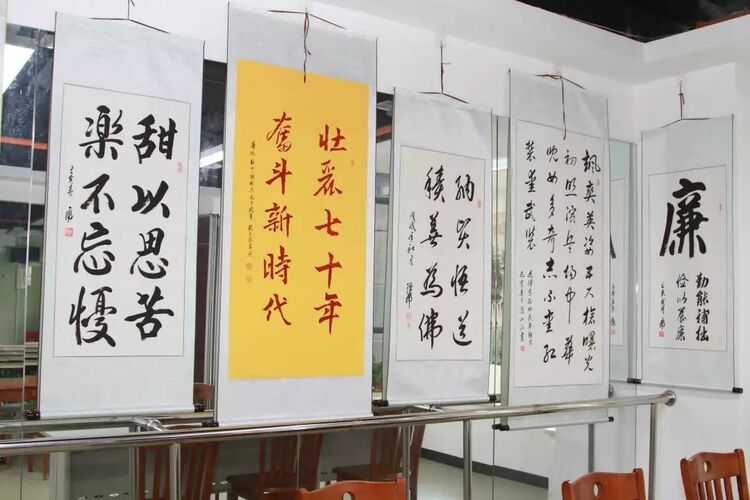 甜以思苦
樂不忘懮
壮麗七十年
奮斗新時代
納 悟道
積善為佛
颯爽英姿五尺槍曙光
初照演兵場中華
兒女多奇志不愛紅
裝愛武裝
廉
勤能補拙
儉以養廉